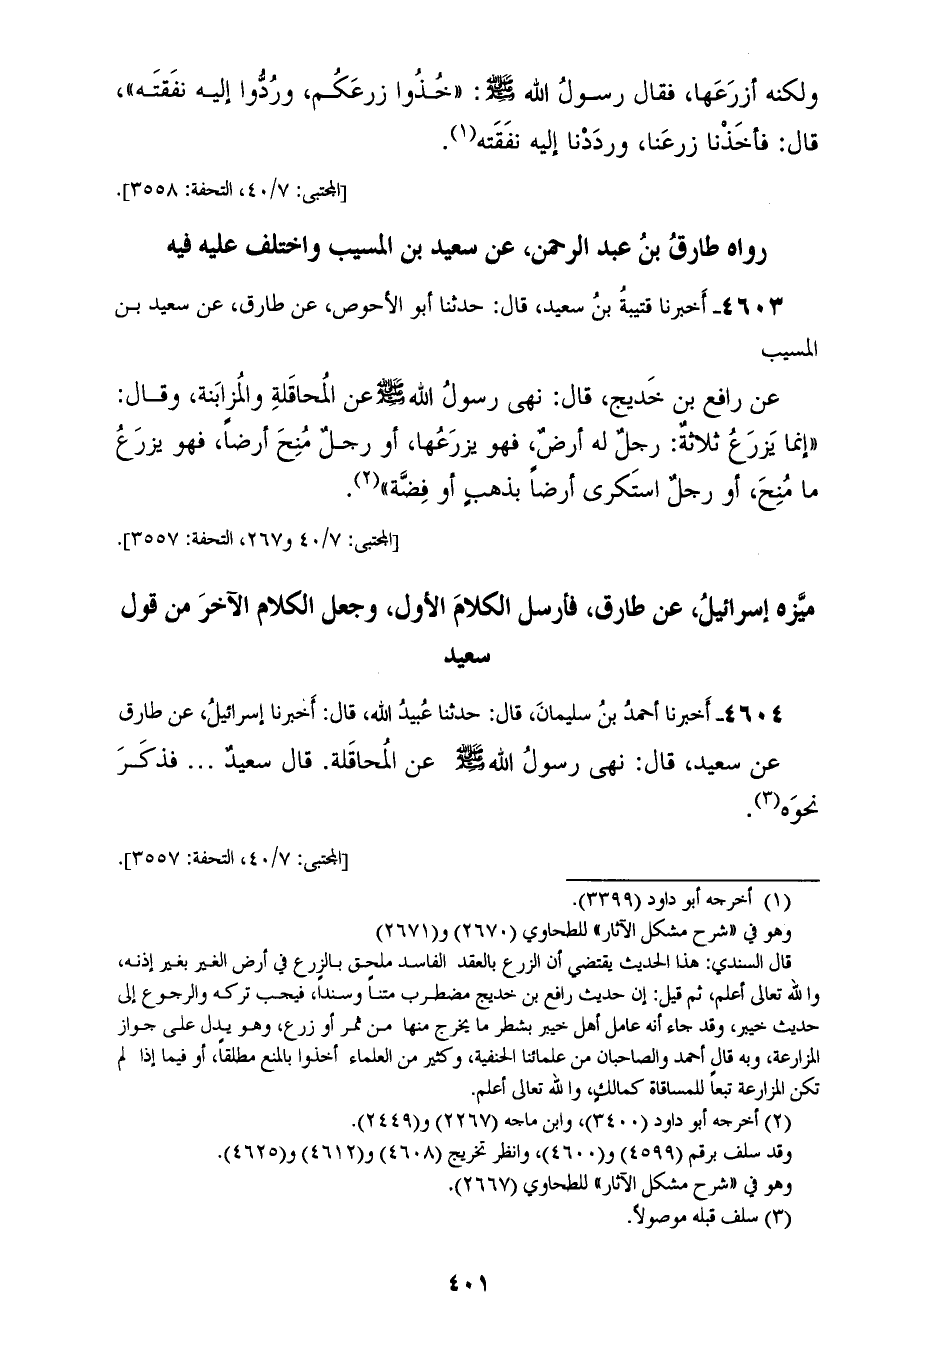 ولكنه أزرَعَها، فقال رسولُ الله ﷺ: «خُذُوا زرعَكُم، ورُدُّوا إليه نفَقَتَه»،
قال: فأخَذْنا زرعَنا، وردَدْنا إليه نفَقَته(١).
[المجتبى: ٤٠/٧، التحفة: ٣٥٥٨].
رواه طارقُ بنُ عبد الرحمن، عن سعيد بن المسيب واختلف عليه فيه
٤٦٠٣ـ أَخبرنا قتيبةُ بنُ سعيد، قال: حدثنا أبو الأحوص، عن طارق، عن سعيد بن
المسيب
عن رافع بن خَديج، قال: نهى رسولُ الله ﷺ عن المُحاقَلةِ والمُزابَنة، وقال:
«إنما يَزرَعُ ثلاثةٌ: رجلٌ له أرضٌ، فهو يزرَعُها، أو رجلٌ مُنِحَ أرضاً، فهو يزرَعُ
ما مُنِحَ، أو رجلٌ استَكرى أرضاً بذهبٍ أو فِضَّة»(٢).
[المجتبى: ٤٠/٧ و٢٦٧، التحفة: ٣٥٥٧].
ميَّزه إسرائيلُ، عن طارق، فأرسل الكلامَ الأول، وجعل الكلام الآخرَ من قول
سعيد
٤٦٠٤ـ أَخبرنا أحمدُ بنُ سليمانَ، قال: حدثنا عُبيدُ الله، قال: أَخبرنا إسرائيلُ، عن طارق
عن سعيد، قال: نهى رسولُ الله ﷺ عن المُحاقَلة. قال سعيدٌ ... فذكَرَ
نحوَه(٣).
[المجتبى: ٤٠/٧، التحفة: ٣٥٥٧].
(١) أخرجه أبو داود (٣٣٩٩).
وهو في «شرح مشكل الآثار» للطحاوي (٢٦٧٠) و(٢٦٧١)
قال السندي: هذا الحديث يقتضي أن الزرع بالعقد الفاسد ملحق بالزرع في أرض الغير بغير إذنه،
والله تعالى أعلم، ثم قيل: إن حديث رافع بن خديج مضطرب متناً وسنداً، فيجب تركه والرجوع إلى
حديث خيبر، وقد جاء أنه عامل أهل خيبر بشطر ما يخرج منها من ثمر أو زرع، وهو يدل على جواز
المزارعة، وبه قال أحمد والصاحبان من علمائنا الحنفية، وكثير من العلماء أخذوا بالمنع مطلقاً، أو فيما إذا لم
تكن المزارعة تبعاً للمساقاة كمالكٍ، والله تعالى أعلم.
(٢) أخرجه أبو داود (٣٤٠٠)، وابن ماجه (٢٢٦٧) و(٢٤٤٩).
وقد سلف برقم (٤٥٩٩) و(٤٦٠٠)، وانظر تخريج (٤٦٠٨) و(٤٦١٢) و(٤٦٢٥).
وهو في «شرح مشكل الآثار» للطحاوي (٢٦٦٧).
(٣) سلف قبله موصولاً.
٤٠١